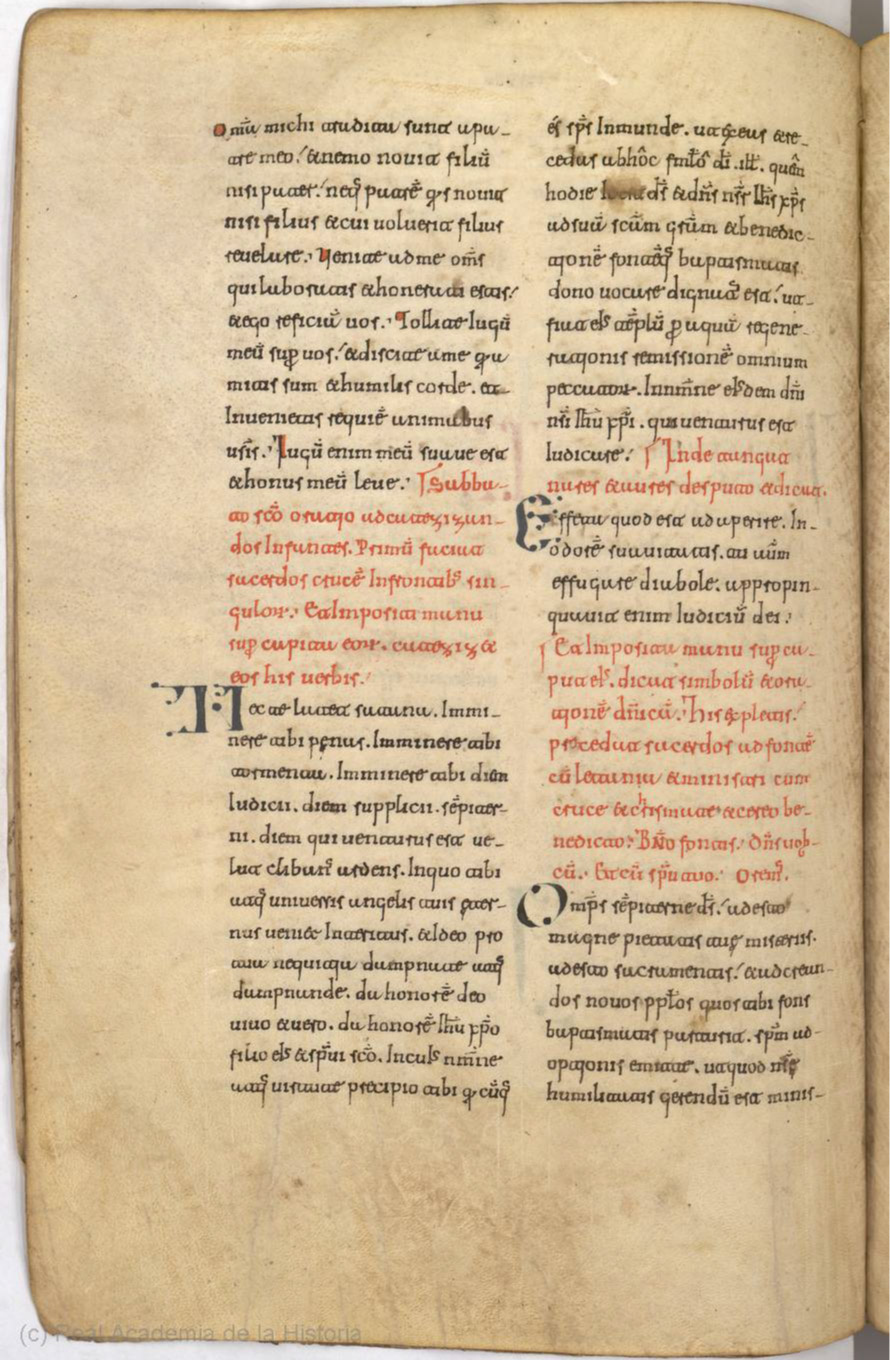 Om̄ia michi tradita sunt a pa-
tre meo. & nemo nouit filiū
nisi pater. neq; patrē q̄s nouit
nisi filius & cui uoluerit filius
reuelare. Uenite ad me om̄s
qui laboratis & honerati estis.
& ego reficiā uos. Tollite iugū
meū sup̄ uos. & discite a me q̄a
mitis sum & humilis corde. et
Inuenietis requiē animabus
ur̄is. Iugū enim meū suaue est
& honus meū leue. Sabba-
to sc̄o oratio ad catezizan-
dos Infantes. Primū faciat
sacerdos crucē In frontib; sin-
gulor̄. Et Imposita manu
sup̄ capita eor̄. catezizet
eos his uerbis.
Nec te lateat satana. Immi-
nere tibi penas. Imminere tibi
tormenta. Imminere tibi diem
Iudicii. diem supplicii sēpiter-
ni. diem qui uenturus est ue-
lut clibanus ardens. In quo tibi
atq; uniuersis angelis tuis eter-
nus ueniet Interitus. & Ideo pro
tua nequitia dampnate atq;
dampnande. da honorē deo
uiuo & uero. da honorē Ih̄u xp̄o
filio ei; & sp̄ui sc̄o. In cui; nm̄ne
atq; uirtute precipio tibi q̄cūq;
és sp̄s Inmunde. ut exeas & re-
cedas ab hôc fml̄o dī. ill̄. quēm
hodie ds̄ & dn̄s nr̄ Ih̄s xp̄s
ad suā sc̄am gr̄am & benedic-
tionē fontēq; baptismatis
dono uocare dignatus est. ut
fiat ei; tēplū p̄ aquā regene-
rationis remissionē omnium
peccator̄. In nm̄ne ei;dem dn̄i
nr̄i Ih̄u xp̄i. qui uenturus est
Iudicare. Inde tangat
nares & aures de sputo & dicat.
Effeta quod est ad aperire. In
odorē suauitatis. tu aūm
effugare diabole. appropin-
quauit enim Iudiciū dei.
Et Imposita manu sup̄ ca-
put ei;. dicat simbolū & ora-
tionē dn̄icā. His expletis.
procedat sacerdos ad fontē
cū letania & ministri cum
cruce & crismate & cereo be-
nedicto. Bn̄o fontis. Dn̄s uob-
cū. Et cū sp̄u tuo. Orem;.
Omp̄s sēpiterne ds̄. adesto
magne pietatis tue misteriis.
adesto sacramentis. & ad crean-
dos nouos pp̄los quos tibi fons
baptismatis parturit. sp̄m ad-
optionis emitte. ut quod nr̄ę
humilitatis gerendū est minis-